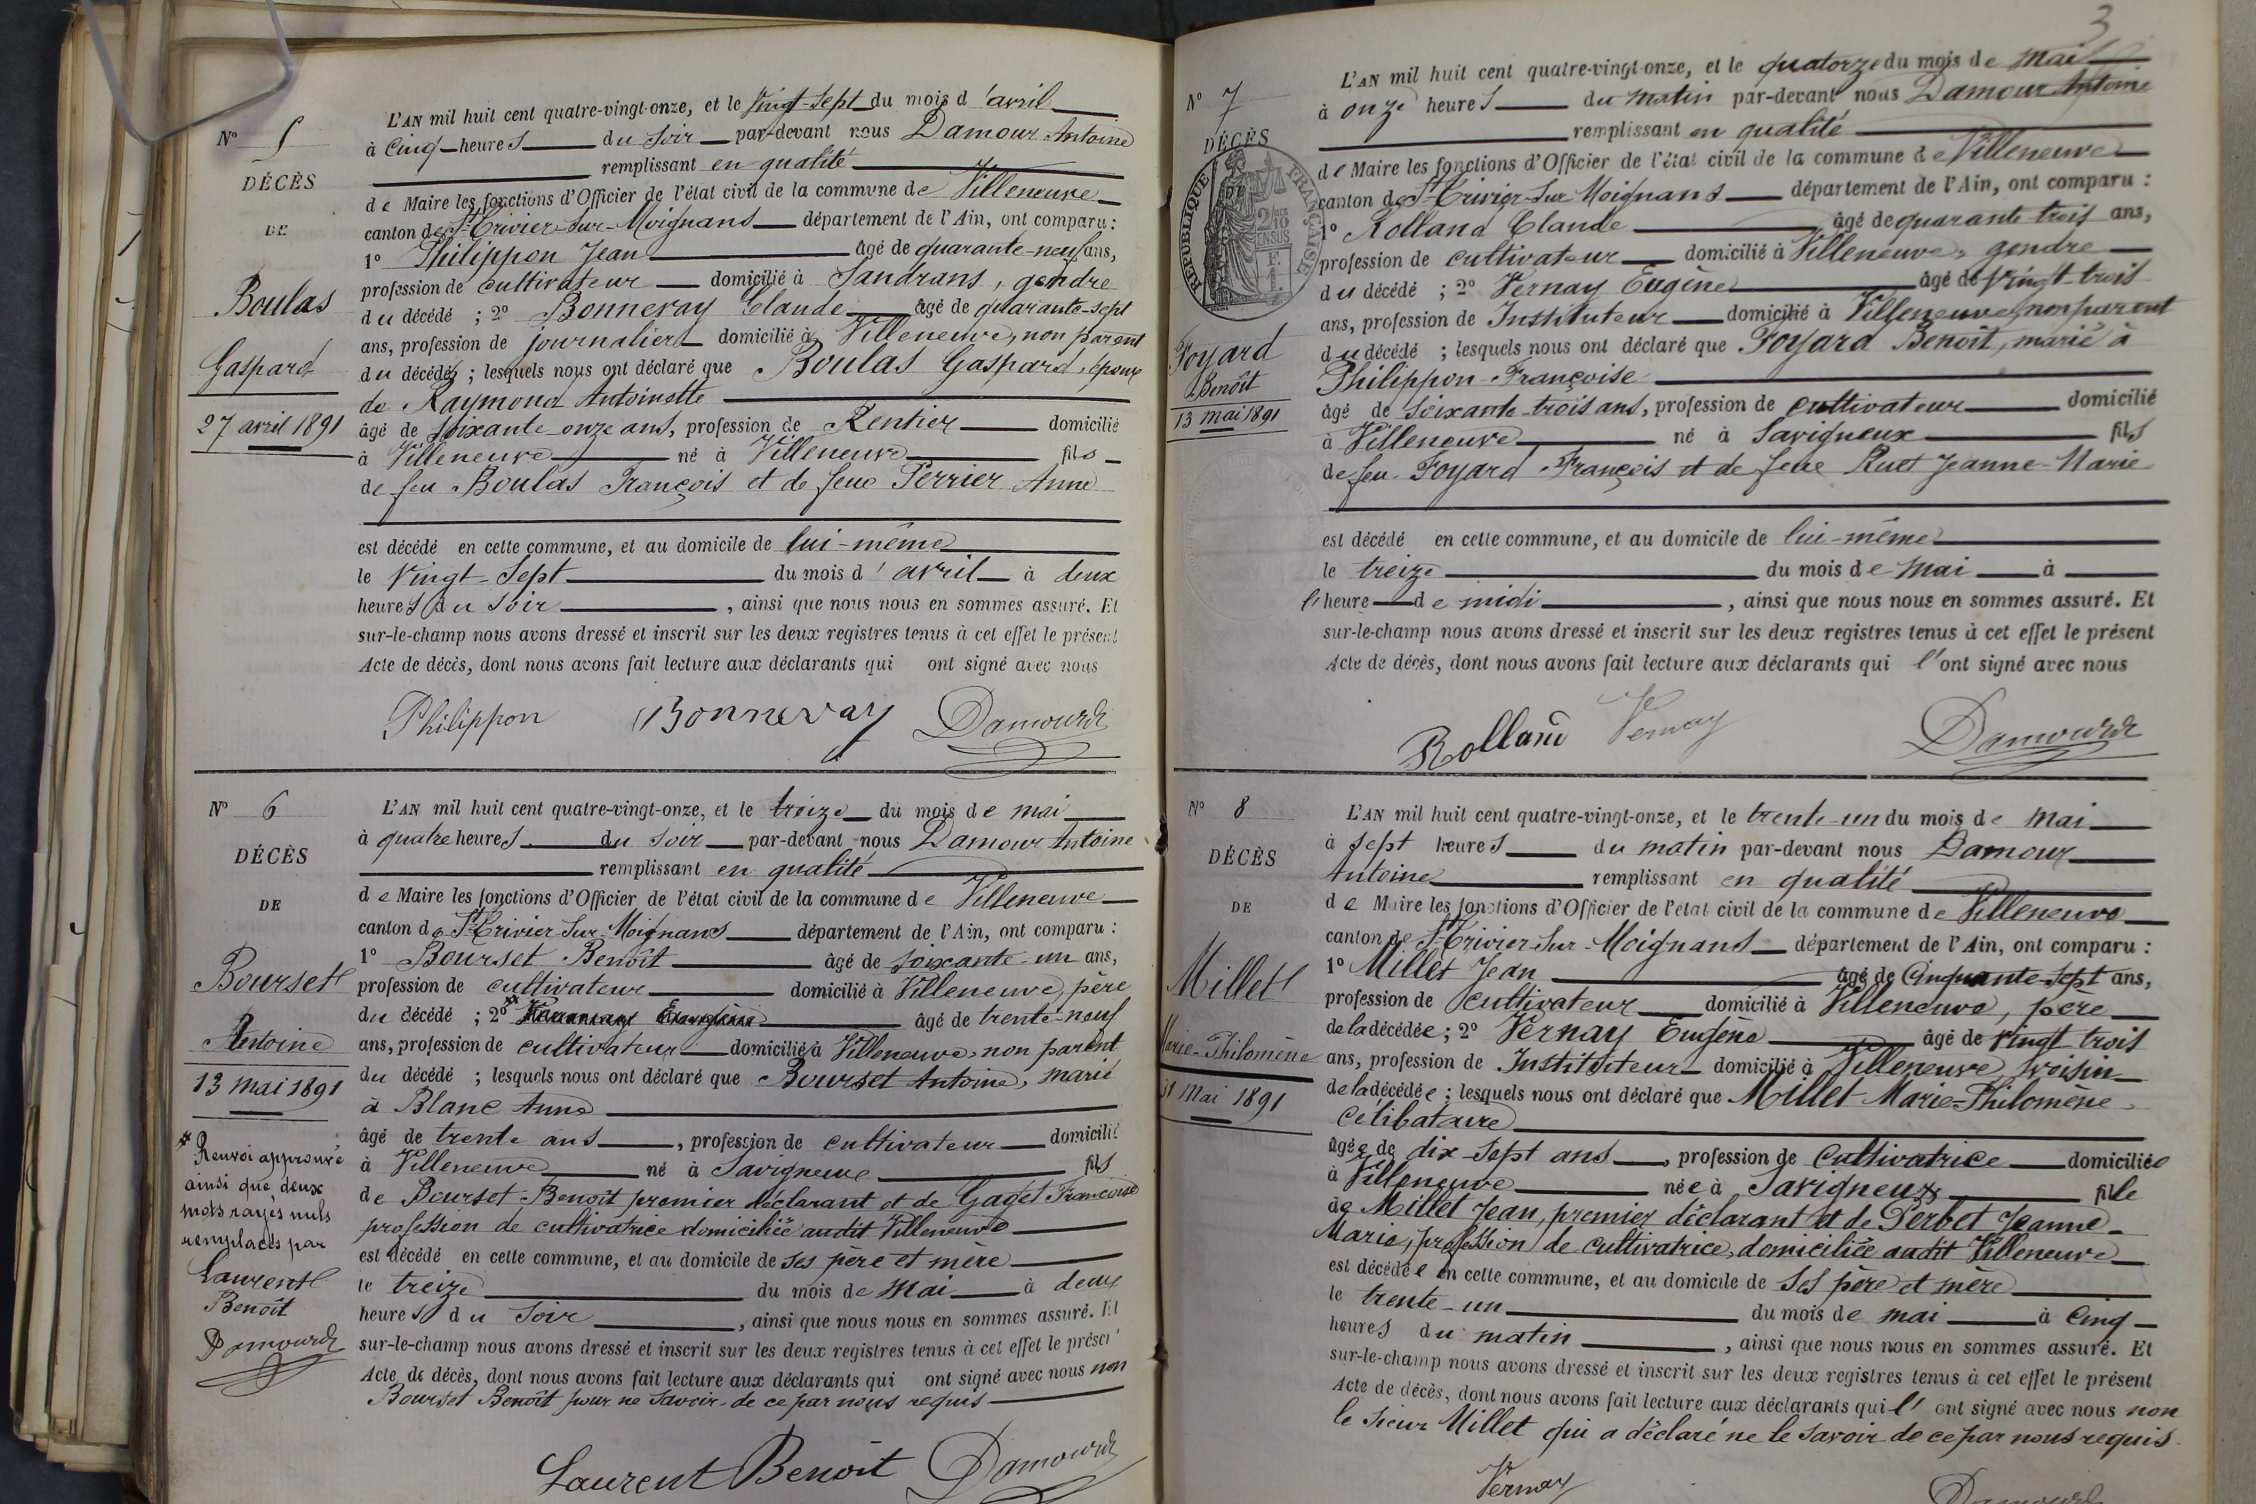 N° 5
DÉCÈS
DE
Boulas
Gaspard
27 avril 1891
L'AN mil huit cent quatre-vingt-onze, et le vingt-sept du mois d'avril
à cinq heures du soir par-devant nous Damour Antoine
remplissant en qualité
de Maire les fonctions d'Officier de l'état civil de la commune de Villeneuve
canton de St Trivier-sur-Moignans département de l'Ain, ont comparu :
1° Philippon Jean âgé de quarante-neuf ans,
profession de cultivateur domicilié à Sandrans, gendre
du décédé ; 2° Bonnevay Claude âgé de quarante-sept
ans, profession de journalier domicilié à Villeneuve, non parent
du décédé ; lesquels nous ont déclaré que Boulas Gaspard, époux
de Raymond Antoinette
âgé de soixante-onze ans, profession de Rentier domicilié
à Villeneuve né à Villeneuve fils
de feu Boulas François et de feue Perrier Anne
est décédé en cette commune, et au domicile de lui-même
le vingt-sept du mois d'avril à deux
heures du soir, ainsi que nous nous en sommes assuré. Et
sur-le-champ nous avons dressé et inscrit sur les deux registres tenus à cet effet le présent
Acte de décès, dont nous avons fait lecture aux déclarants qui ont signé avec nous
Philippon Bonnevay Damour
N° 6
DÉCÈS
DE
Bourset
Antoine
13 mai 1891
Renvoi approuvé
ainsi que deux
mots rayés nuls
remplacés par
Laurent
Benoît
Damour
L'AN mil huit cent quatre-vingt-onze, et le treize du mois de mai
à quatre heures du soir par-devant nous Damour Antoine
remplissant en qualité
de Maire les fonctions d'Officier de l'état civil de la commune de Villeneuve
canton de St Trivier-sur-Moignans département de l'Ain, ont comparu :
1° Bourset Benoît âgé de soixante-un ans,
profession de cultivateur domicilié à Villeneuve, père
du décédé ; 2° âgé de trente-neuf
ans, profession de cultivateur domicilié à Villeneuve, non parent
du décédé ; lesquels nous ont déclaré que Bourset Antoine, marié
à Blanc Anne
âgé de trente ans, profession de cultivateur domicilié
à Villeneuve né à Savigneux fils
de Bourset Benoît premier déclarant et de Gaget Françoise
profession de cultivatrice domiciliée audit Villeneuve
est décédé en cette commune, et au domicile de ses père et mère
le treize du mois de mai à deux
heures du soir, ainsi que nous nous en sommes assuré. Et
sur-le-champ nous avons dressé et inscrit sur les deux registres tenus à cet effet le présent
Acte de décès, dont nous avons fait lecture aux déclarants qui ont signé avec nous non
Bourset Benoît pour ne savoir de ce par nous requis
Laurent Benoît Damour
3
N° 7
DÉCÈS
RÉPUBLIQUE FRANÇAISE
Foyard
Benoît
13 mai 1891
L'AN mil huit cent quatre-vingt-onze, et le quatorze du mois de mai
à onze heures du matin par-devant nous Damour Antoine
remplissant en qualité
de Maire les fonctions d'Officier de l'état civil de la commune de Villeneuve
canton de St Trivier-sur-Moignans département de l'Ain, ont comparu :
1° Rolland Claude âgé de quarante-trois ans,
profession de cultivateur domicilié à Villeneuve, gendre
du décédé ; 2° Vernay Eugène âgé de vingt-trois
ans, profession de Instituteur domicilié à Villeneuve, non parent
du décédé ; lesquels nous ont déclaré que Foyard Benoît, marié à
Philippon Françoise
âgé de soixante-trois ans, profession de cultivateur domicilié
à Villeneuve né à Savigneux fils
de feu Foyard François et de feue Ruet Jeanne-Marie
est décédé en cette commune, et au domicile de lui-même
le treize du mois de mai à
l'heure de midi, ainsi que nous nous en sommes assuré. Et
sur-le-champ nous avons dressé et inscrit sur les deux registres tenus à cet effet le présent
Acte de décès, dont nous avons fait lecture aux déclarants qui l'ont signé avec nous
Rolland Vernay Damour
N° 8
DÉCÈS
DE
Millet
Marie-Philomène
31 Mai 1891
L'AN mil huit cent quatre-vingt-onze, et le trente-un du mois de mai
à sept heures du matin par-devant nous Damour
Antoine remplissant en qualité
de Maire les fonctions d'Officier de l'état civil de la commune de Villeneuve
canton de St Trivier-sur-Moignans département de l'Ain, ont comparu :
1° Millet Jean âgé de cinquante-sept ans,
profession de cultivateur domicilié à Villeneuve, père
de la décédée ; 2° Vernay Eugène âgé de vingt-trois
ans, profession de Instituteur domicilié à Villeneuve, voisin
de la décédée ; lesquels nous ont déclaré que Millet Marie-Philomène
célibataire
âgée de dix-sept ans, profession de cultivatrice domiciliée
à Villeneuve née à Savigneux fille
de Millet Jean, premier déclarant et de Perbet Jeanne-
Marie, profession de cultivatrice, domiciliée audit Villeneuve
est décédée en cette commune, et au domicile de ses père et mère
le trente-un du mois de mai à cinq
heures du matin, ainsi que nous nous en sommes assuré. Et
sur-le-champ nous avons dressé et inscrit sur les deux registres tenus à cet effet le présent
Acte de décès, dont nous avons fait lecture aux déclarants qui l'ont signé avec nous non
le sieur Millet qui a déclaré ne le savoir de ce par nous requis
Vernay Damour